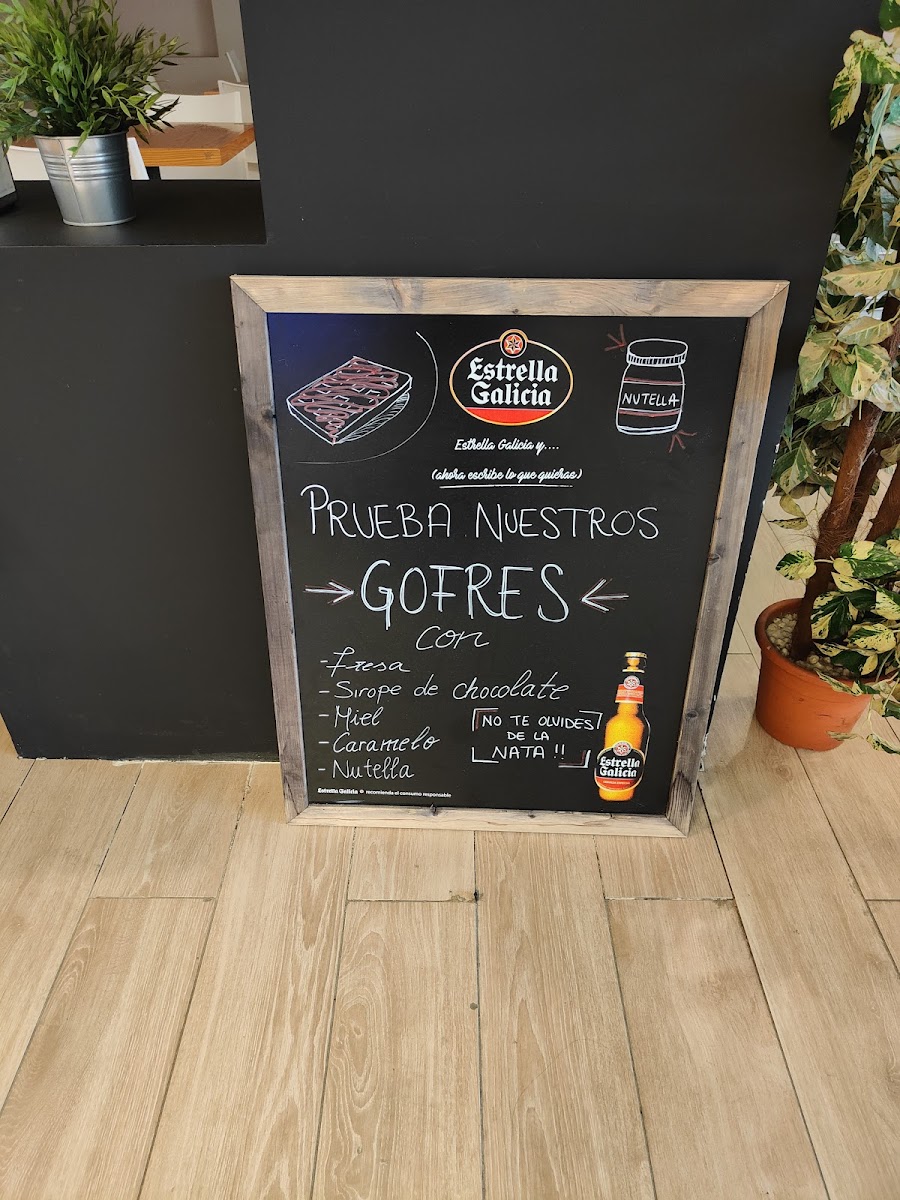 Estrella
Galicia
NUTELLA
Estrella Galicia y....
(ahora escribe lo que quieras)
PRUEBA NUESTROS
GOFRES
con
- Fresa
- Sirope de chocolate
- Miel
- Caramelo
- Nutella
NO TE OLVIDES
DE LA
NATA !!
Estrella
Galicia
Estrella Galicia recomienda el consumo responsable